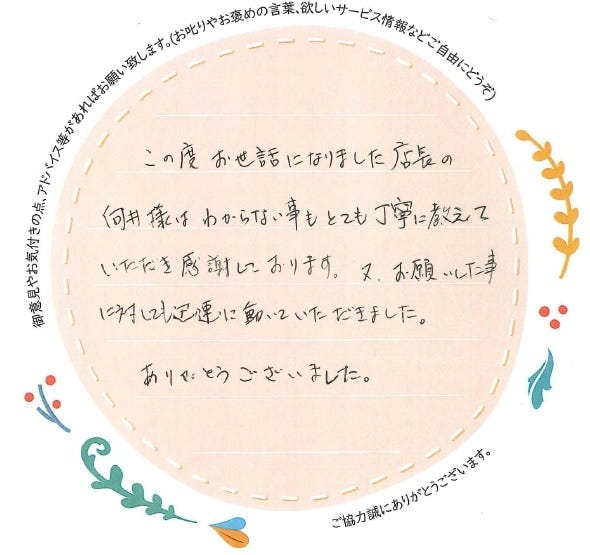 御意見やお気付きの点、アドバイス等があればお願い致します。(お叱りやお褒めの言葉、欲しいサービス情報などご自由にどうぞ)
この度 お世話になりました店長の
向井様は わからない事も とても丁寧に教えて
いただき感謝しております。又、お願いした事
に対しても迅速に動いていただきました。
ありがとうございました。
ご協力誠にありがとうございます。